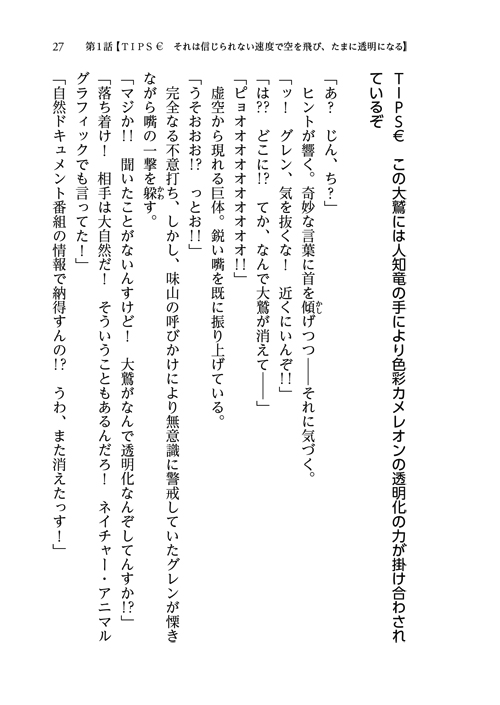 27　第1話【TIPS€　それは信じられない速度で空を飛び、たまに透明になる】
TIPS€　この大鷲には人知竜の手により色彩カメレオンの透明化の力が掛け合わされ
ているぞ
「あ？　じん、ち？」
ヒントが響く。奇妙な言葉に首を傾げつつ――それに気づく。
「ッ！　グレン、気を抜くな！　近くにいんぞ!!」
「は??　どこに!?　てか、なんで大鷲が消えて――」
「ピョオオオオオオオオオオオ!!」
虚空から現れる巨体。鋭い嘴を既に振り上げている。
「うそおおお!?　っとお!!」
完全なる不意打ち、しかし、味山の呼びかけにより無意識に警戒していたグレンが慄き
ながら嘴の一撃を躱す。
「マジか!!　聞いたことがないんすけど！　大鷲がなんで透明化なんぞしてんすか!?」
「落ち着け！　相手は大自然だ！　そういうこともあるんだろ！　ネイチャー・アニマル
グラフィックでも言ってた！」
「自然ドキュメント番組の情報で納得すんの!?　うわ、また消えたっす！」